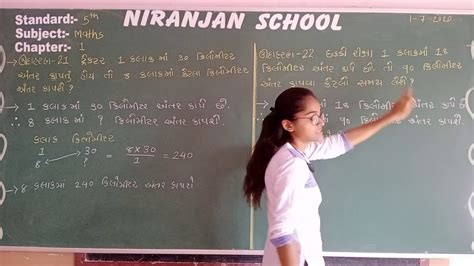 NIRANJAN SCHOOL
Standard:- 5th
Subject:- Maths
Chapter:- 1
1-7-2020
ઉદાહરણ-21 ટ્રેક્ટર 1 કલાકમાં ૩૦ કિલોમીટર
અંતર કાપતું હોય તો 8 કલાકમાં કેટલા કિલોમીટર
અંતર કાપશે?
∴ 1 કલાકમાં ૩૦ કિલોમીટર અંતર કાપે છે.
∴ 8 કલાકમાં ? કિલોમીટર અંતર કાપશે.
કલાક કિલોમીટર
1 30 = 8x30 = 240
8 ? 1
→ 8 કલાકમાં 240 કિલોમીટર અંતર કાપશે
ઉદાહરણ-22 રીક્ષા 1 કલાકમાં 18
કિલોમીટર અંતર કાપે છે. તો ૧૦ કિલોમીટર
અંતર કાપતા કેટલો સમય લેશે?
18 કિલોમીટર અંતર કાપે છે.
૧૦ કિલોમીટર અંતર કાપશે.